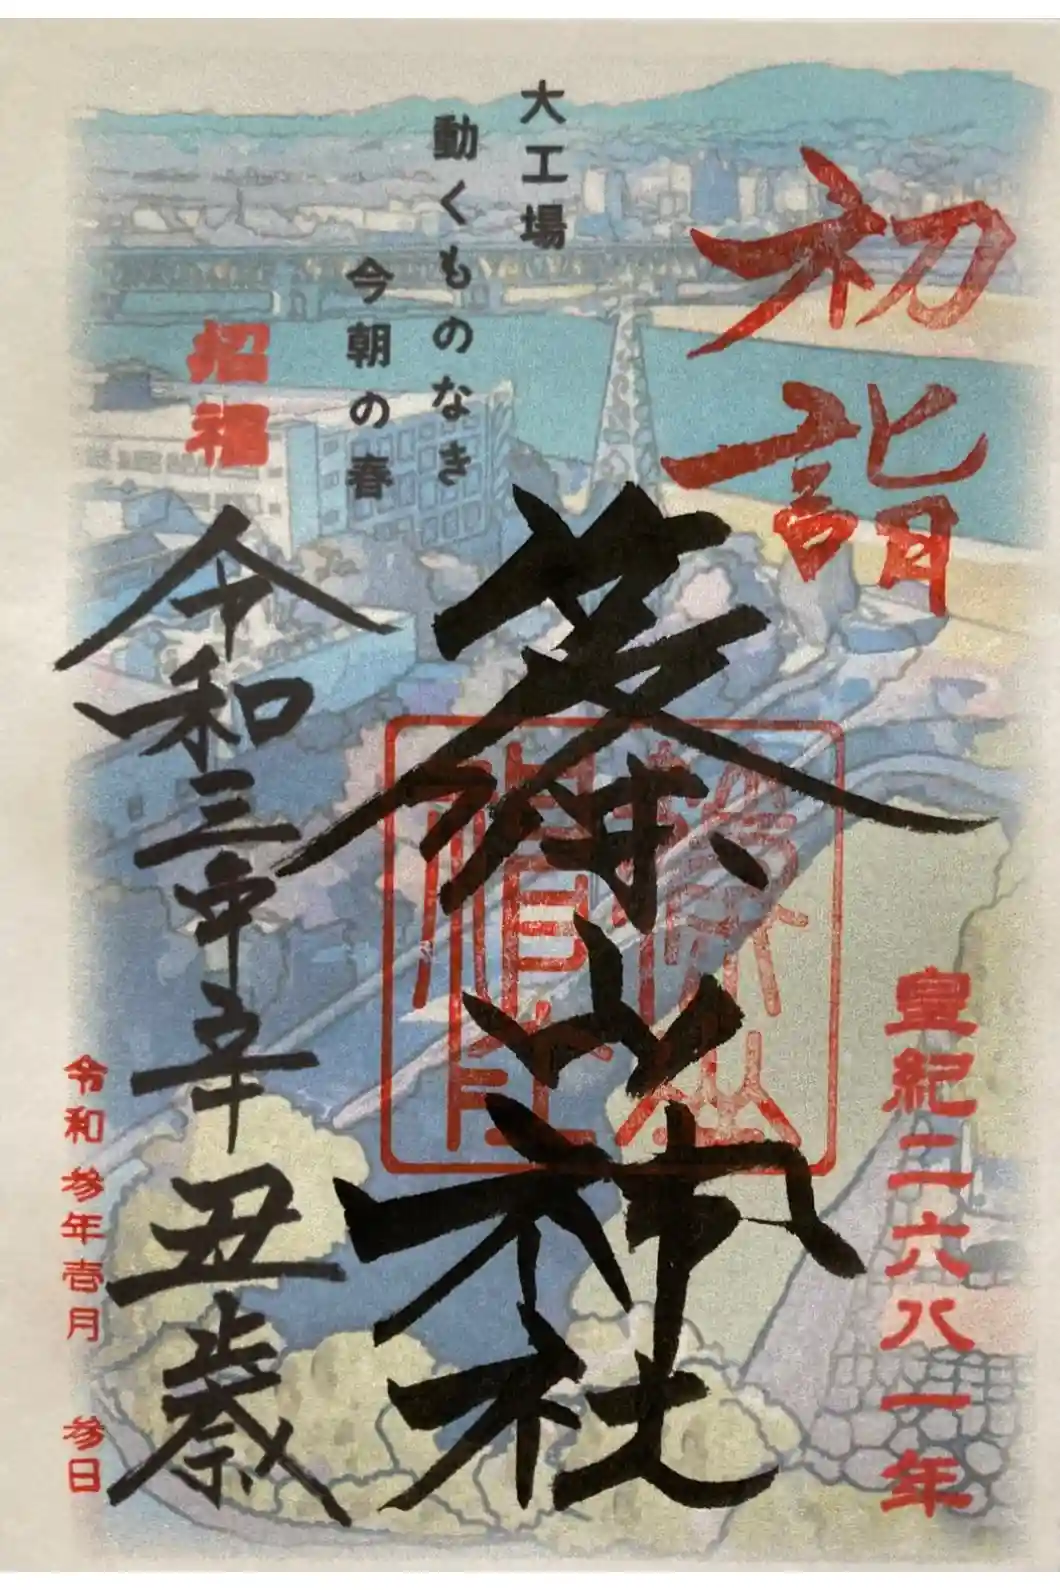 初詣
皇紀二六八一年
大工場
動くものなき
今朝の春
篠山神社
招福
令和三年辛丑歳
令和参年壱月 参日